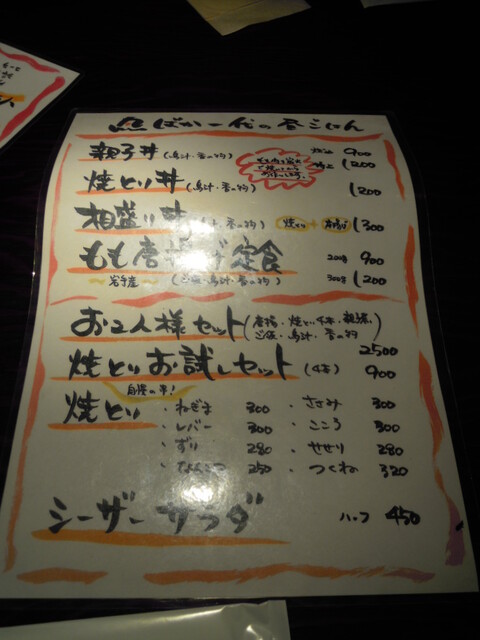 魚ばか一代の昼ごはん
親子丼(鳥汁・香の物) 900
1,200
焼とり丼(鳥汁・香の物) 1,200
相盛り丼(鳥汁・香の物) 焼とり + 親子 1,300
もも唐揚げ定食 200g 900
岩手産 (ご飯・鳥汁・香の物) 300g 1,200
お2人様セット(唐揚・焼とり4本・親子丼
ご飯・鳥汁・香の物) 2500
焼とりお試しセット(4本) 900
自慢の串!
焼とり ・ねぎま 300 ・ささみ 300
・レバー 300 ・こころ 300
・ずり 280 ・せせり 280
・なんこつ 250 ・つくね 320
シーザーサラダ ハーフ 450